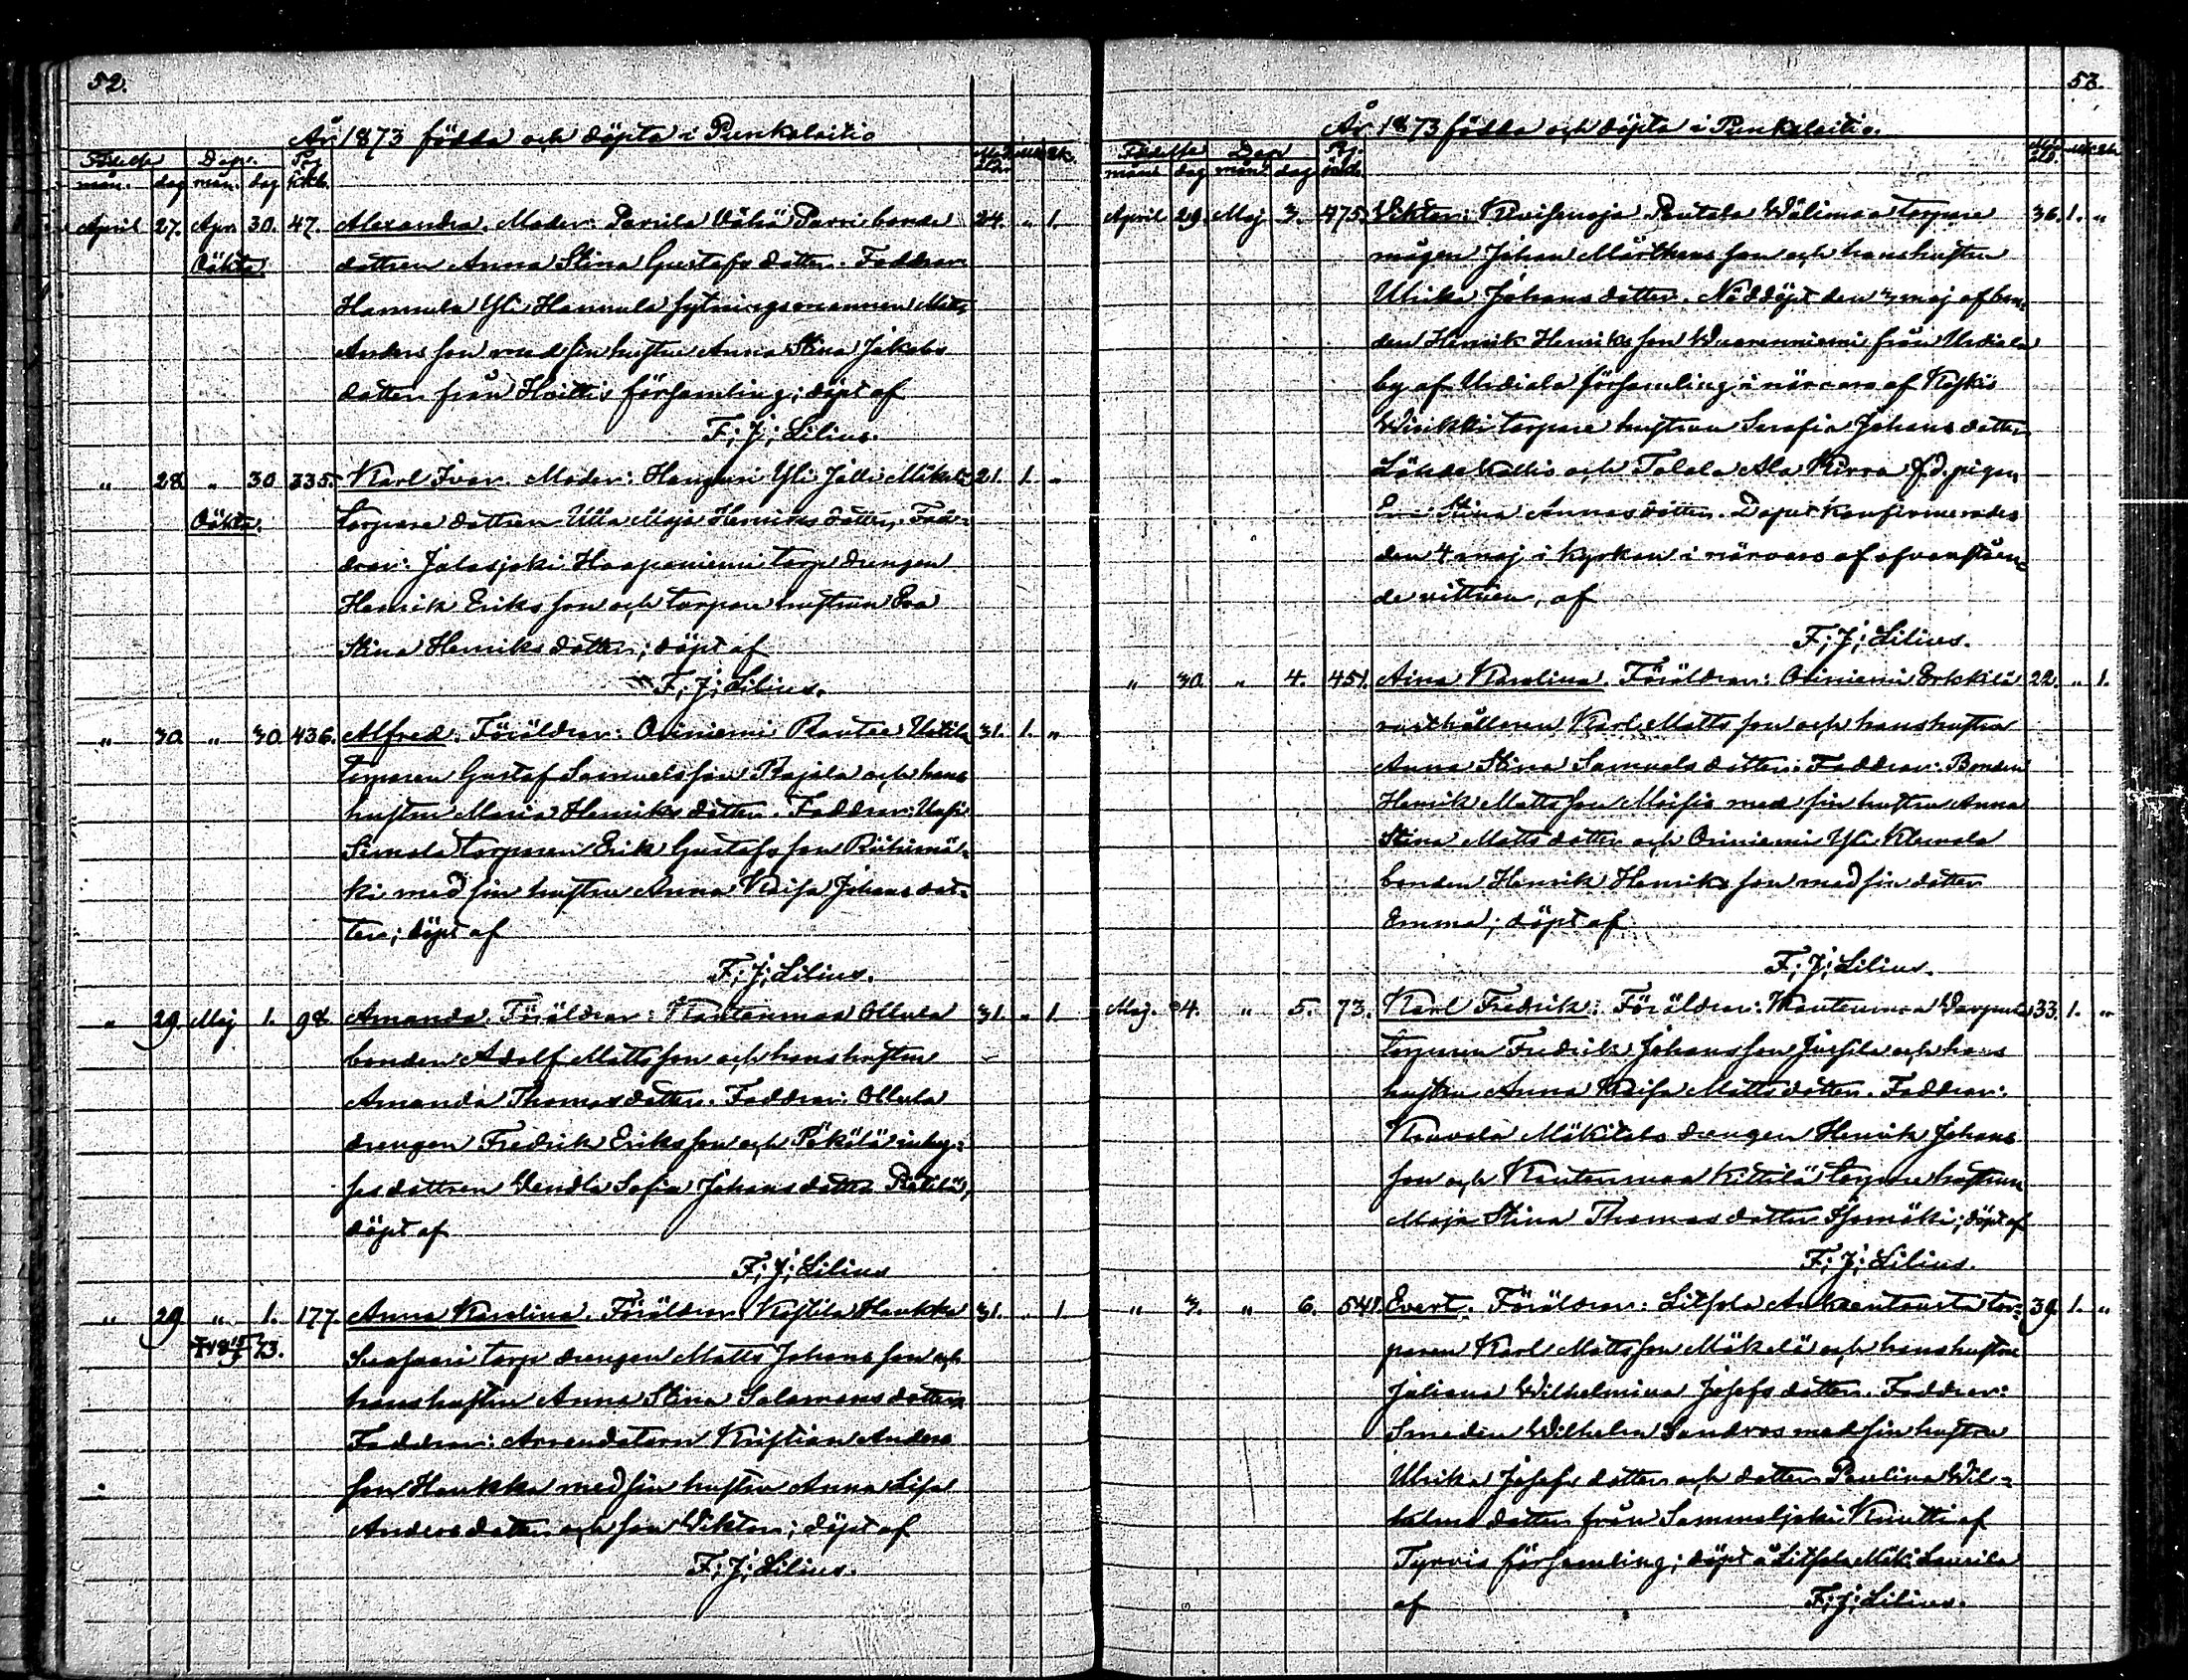 52.
År 1873 födda och döpta i Punkalaitio
Födelse Dop. Pag.
mån. dag mån. dag
April 27. Apr. 30. 47. Alexandra. Moder: Parrila Vähä Parri bonde 24. „ 1.
Oäkta dottren Anna Stina Gustafs dotter. Faddrar
Hannula Yli Hannula sytningsmannen Matts
Anders son med sin hustru Anna Stina Jakobs
dotter från Hvittis församling; döpt af
F; J; Lilius.
„ 28. „ 30 335. Karl Ivar. Moder: Haugusi Yli Jälli Mäkelä 21. 1. „
Oäkta. torpare dottren Ulla Maja Henriks dotter. Fad-
drar: Jalasjoki Haapaniemi torp drengen
Henrik Eriks son och torpare hustrun Eva
Stina Henriks dotter; döpt af
F; J; Lilius.
„ 30. „ 30. 436. Alfred. Föräldrar: Oriniemi Rautee Uutila 31. 1. „
torparen Gustaf Samuels son Rajala och hans
hustru Maria Henriks dotter. Faddrar: Uusi
Simola torparen Erik Gustafs son Riihimä-
ki med sin hustru Anna Kaisa Johans dot-
ter; döpt af
F; J; Lilius.
„ 29. Maj 1. 98 Amanda. Föräldrar: Kanteenmaa Ollula 31. „ 1.
bonden Adolf Matts son och hans hustru
Amanda Thomas dotter. Faddrar: Ollula
drengen Fredrik Eriks son och Päkälä inhy-
ses dottren Vendla Sofia Johans dotter Ratilä,
döpt af
F; J; Lilius
„ 29 „ 1. 177. Anna Karolina. Föräldrar: Kostila Haukka 31. „ 1
73. torp drengen Matts Johans son och
hans hustru Anna Stina Salomons dotter
Faddrar: Arrendatorn Kristian Anders
son Haukka med sin hustru Anna Lisa
Anders dotter och son Viktor; döpt af
F; J; Lilius.
53.
År 1873 födda och döpta i Punkalaitio.
Födelse Dop Pag.
mån dag mån dag
April 29. Maj 3. 475. Viktor: Kuvisenoja Rautala Wälimaa torpare 36. 1. „
mågen Johan Märthens son och hans hustru
Ulrika Johans dotter. Nöddöpt den 3 maj af bon-
den Henrik Henriks son Wuorenniemi från Urdiala
by af Urdiala församling i närvaro af Koskis
Wirikki torpare hustrun Serafia Johans dotter
Lähdekallio och Talala Ala Kirra f.d. pigan
Eva Stina Annas dotter. Dopet konfirmerades
den 4 maj i kyrkan i närvaro af ofvanståen-
de vittnen, af
F; J; Lilius.
„ 30. „ 4. 451. Aina Karolina. Föräldrar: Oriniemi Erkkilä 22. „ 1.
rusthållaren Karl Matts son och hans hustru
Anna Stina Samuels dotter. Faddrar: Bonden
Henrik Matts son Moisio med sin hustru Anna
Stina Matts dotter och Oriniemi Yli Klemola
bonden Henrik Henriks son med sin dotter
Emma; döpt af
F; J; Lilius.
Maj. 4. „ 5. 73. Karl Fredrik: Föräldrar: Kanteenmaa Varpula 33. 1. „
torparen Fredrik Johans son Jussila och hans
hustru Anna Kaisa Matts dotter. Faddrar:
Kouvola Mäkitalo drengen Henrik Johans
son och Kanteenmaa Kittilä torpare hustrun
Maja Stina Thomas dotter Isomäki; döpt af
F; J; Lilius.
„ 3. „ 6. 541. Evert. Föräldrar: Liitsola Ankeentausta tor- 39. 1. „
paren Karl Matts son Mäkelä och hans hustru
Juliana Wilhelmina Josefs dotter. Faddrar:
Smeden Wilhelm Sandros med sin hustru
Ulrika Josefs dotter och dotter Paulina Wil-
helms dotter från Sammaljoki Knuutti af
Tyrvis församling; döpt å Liitsola Mäki Laurila
af F; J; Lilius.